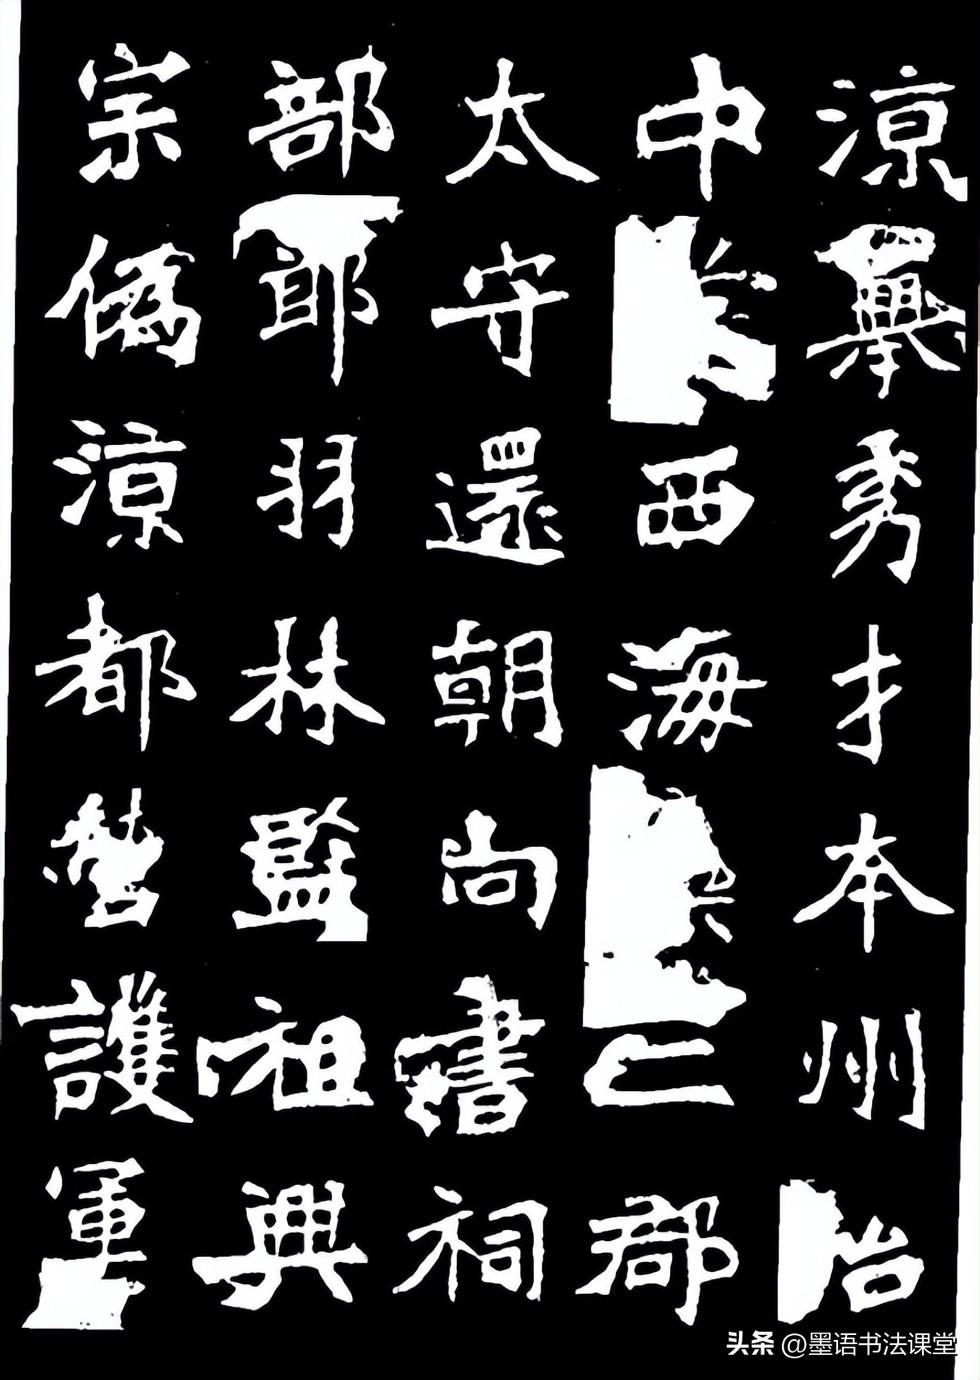 涼舉秀才本州治
中西海二郡
太守還朝尚書祠
部郎羽林監祖興
宗偽涼都營護軍
头条 @墨语书法课堂